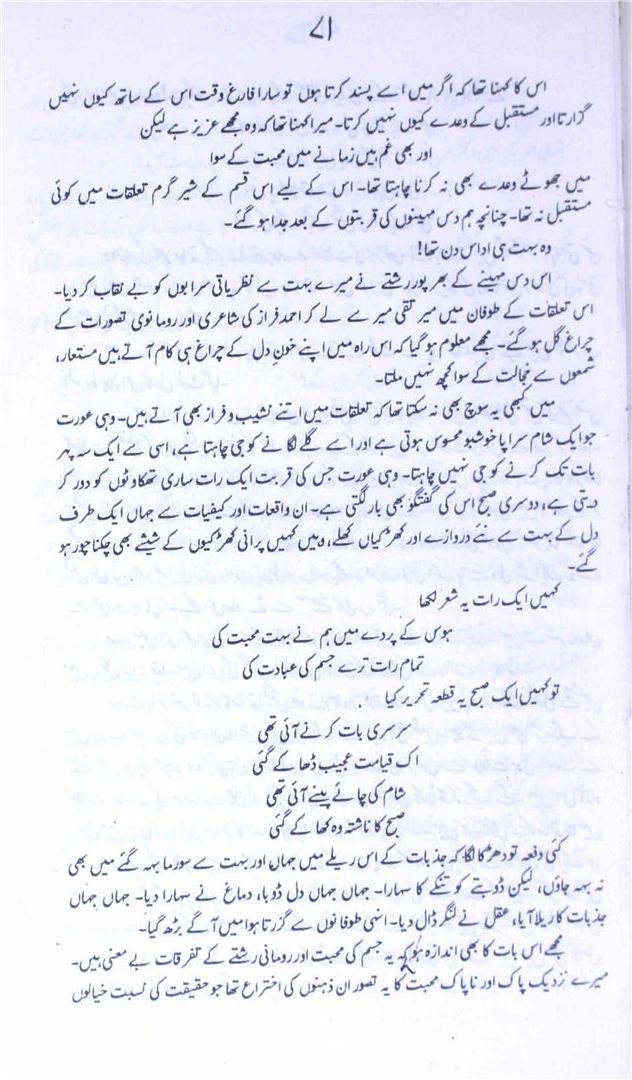 ۷۱
اس کا کہنا تھا کہ اگر میں اسے پسند کرتا ہوں تو سارا فارغ وقت اس کے ساتھ کیوں نہیں
گزارتا اور مستقبل کے وعدے کیوں نہیں کرتا۔ میرا کہنا تھا کہ وہ مجھے عزیز ہے لیکن
اور بھی غم ہیں زمانے میں محبت کے سوا
میں جھوٹے وعدے بھی نہ کرنا چاہتا تھا۔ اس کے لیے اس قسم کے شیر گرم تعلقات میں کوئی
مستقبل نہ تھا۔ چنانچہ ہم دس مہینوں کی قربتوں کے بعد جدا ہو گئے۔
وہ بہت ہی اداس دن تھا!
اس دس مہینے کے بھرپور رشتے نے میرے بہت سے نظریاتی سرابوں کو بے نقاب کر دیا۔
اس تعلقات کے طوفان میں میر تقی میر سے لے کر احمد فراز کی شاعری اور رومانوی تصورات کے
چراغ گل ہو گئے۔ مجھے معلوم ہو گیا کہ اس راہ میں اپنے خونِ دل کے چراغ ہی کام آتے ہیں مستعار،
شمعوں سے خجالت کے سوا کچھ نہیں ملتا۔
میں کبھی یہ سوچ بھی نہ سکتا تھا کہ تعلقات میں اتنے نشیب و فراز بھی آتے ہیں۔ وہی عورت
جو ایک شام سراپا خوشبو محسوس ہوتی ہے اور اسے گلے لگانے کو جی چاہتا ہے، اسی سے ایک سہ پہر
بات تک کرنے کو جی نہیں چاہتا۔ وہی عورت جس کی قربت ایک رات ساری تھکاوٹوں کو دور کر
دیتی ہے، دوسری صبح اس کی گفتگو بھی بار لگتی ہے۔ ان واقعات اور کیفیات سے جہاں ایک طرف
دل کے بہت سے نئے دروازے اور کھڑکیاں کھلے، وہیں کہیں پرانی کھڑکیوں کے شیشے بھی چکنا چور ہو
گے۔
کہیں ایک رات یہ شعر لکھا
ہوس کے پردے میں ہم نے بہت محبت کی
تمام رات ترے جسم کی عبادت کی
تو کہیں ایک صبح یہ قطعہ تحریر کیا
سرسری بات کرنے آئی تھی
اک قیامت عجیب ڈھا کے گئی
شام کی چائے پینے آئی تھی
صبح کا ناشتہ وہ کھا کے گئی
کئی دفعہ تو دھڑکا لگا کہ جذبات کے اس ریلے میں جہاں اور بہت سے سورما بہہ گئے میں بھی
نہ بہہ جاؤں، لیکن ڈوبتے کو تنکے کا سہارا۔ جہاں جہاں دل ڈوبا، دماغ نے سہارا دیا۔ جہاں جہاں
جذبات کا ریلا آیا، عقل نے لنگر ڈال دیا۔ انہی طوفانوں سے گزرتا ہوا میں آگے بڑھ گیا۔
مجھے اس بات کا بھی اندازہ ہوا کہ یہ جسم کی محبت اور رومانی رشتے کے تفرقات بے معنی ہیں۔
میرے نزدیک پاک اور ناپاک محبت کا یہ تصور ان ذہنوں کی اختراع تھا جو حقیقت کی نسبت خیالوں